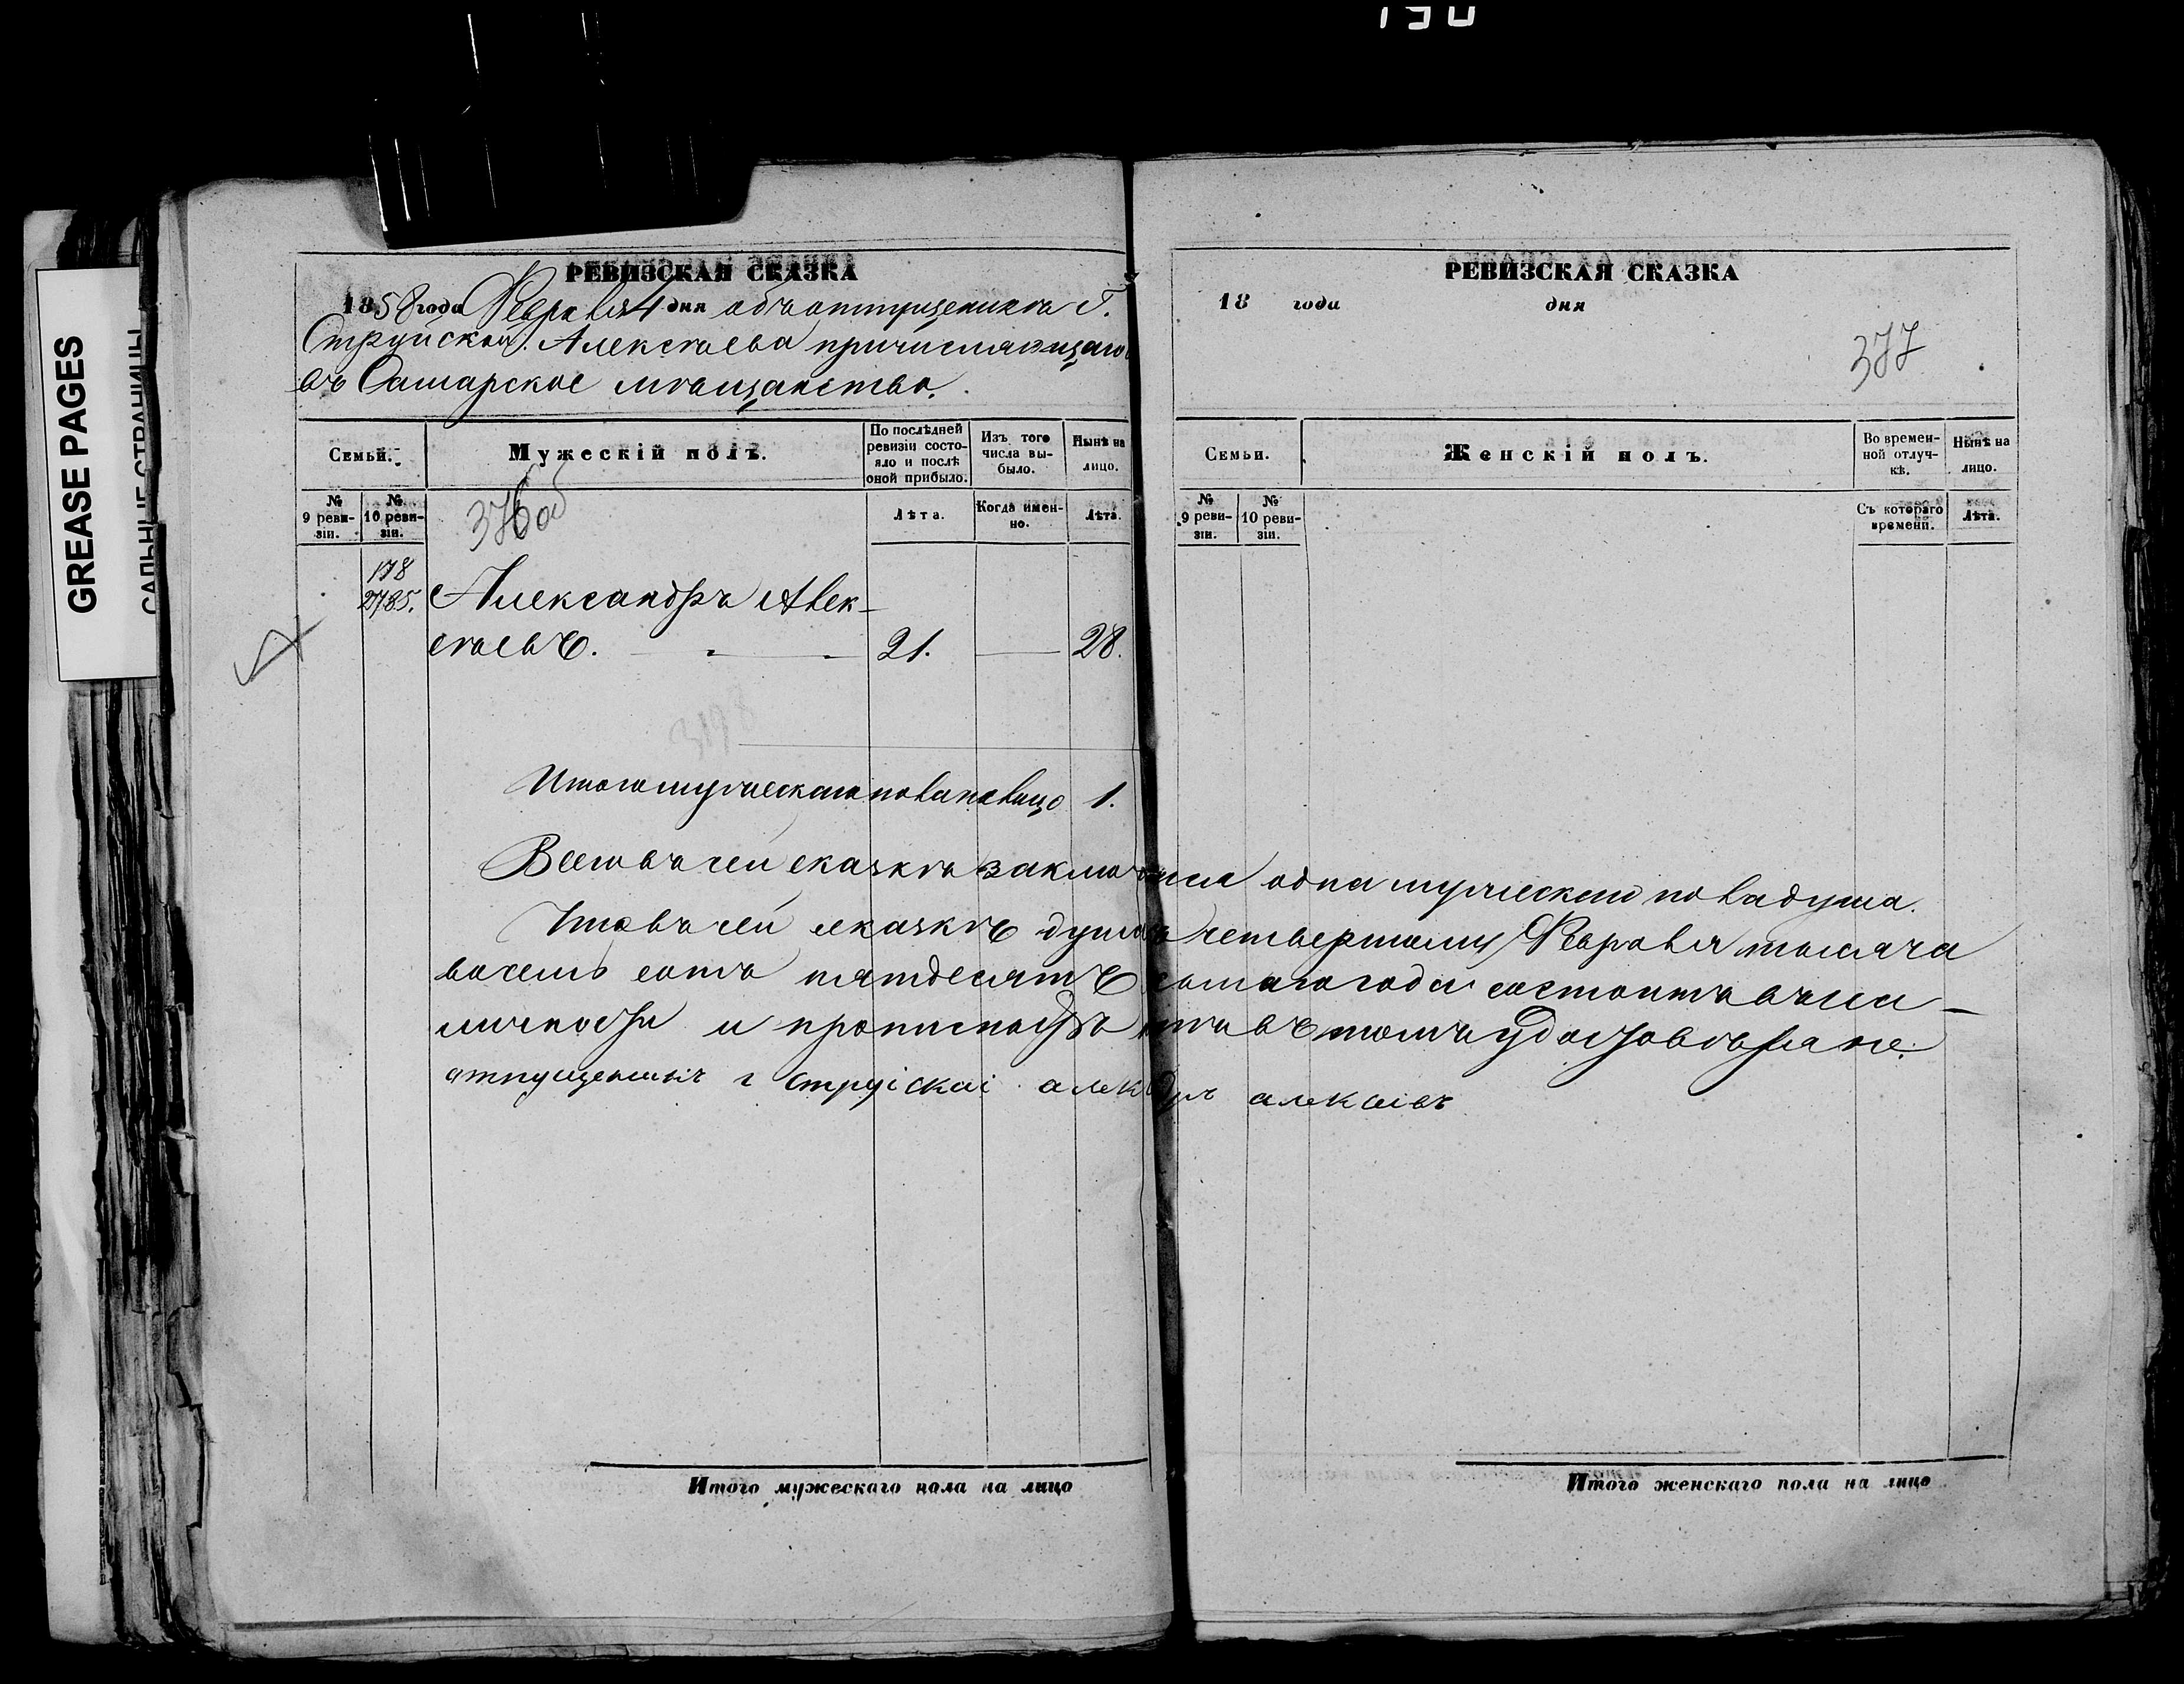 GREASE PAGES
САЛЬНЫЕ СТРАНИЦЫ
РЕВИЗСКАЯ СКАЗКА
1858 года Февраля 4 дня объ отпущеникѣ Г.
Струйской Алексѣева причисляющаго
въ Самарское мѣщанство.
Семьи.
Мужескій полъ.
По послѣдней ревизіи состояло и послѣ оной прибыло.
Изъ того числа выбыло.
Нынѣ на лицо.
№ 9 ревизіи.
№ 10 ревизіи.
376 об
Лѣта.
Когда именно.
Лѣта.
178
2785.
Александръ Алек-
сѣевъ. 21. — 28.
3178
Итого мужескаго пола на лицо 1.
Итого мужескаго пола на лицо
РЕВИЗСКАЯ СКАЗКА
18 года дня
377
Семьи.
Женскій полъ.
Во временной отлучкѣ.
Нынѣ на лицо.
№ 9 ревизіи.
№ 10 ревизіи.
Съ котораго времени.
Лѣта.
Всего въ сей сказкѣ заключается одна мужескаго пола душа.
Что въ сей сказкѣ душъ къ четвертому Февраля тысяча
восемь сотъ пятдесятъ годи состоитъ въ на-
личности и въ томъ удостовѣряю.
отпущенникъ г Струiскаi алекъдръ алексевъ
Итого женскаго пола на лицо